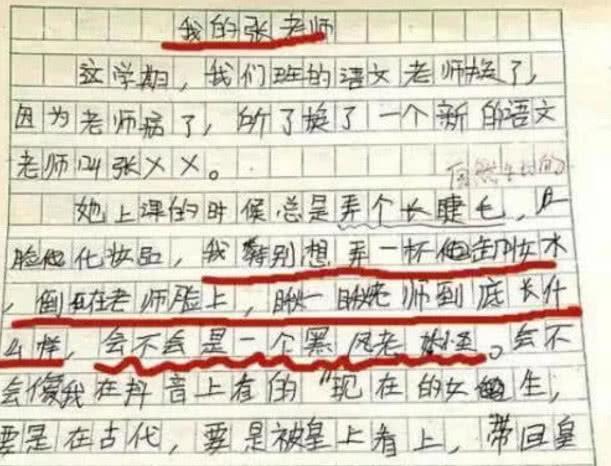 我的张老师
这学期，我们班的语文老师换了，
因为老师病了，所了换了一个新的语文
老师叫张××。
自然生长的
她上课的时候总是弄个长睫毛，
脸他化妆品，我特别想弄一杯他卸妆水
，倒在老师脸上，瞅一瞅老师到底长什
么样，会不会是一个黑风老妖怪。会不
会像我在抖音上看的"现在的女生，
要是在古代，要是被皇上看上，带回皇